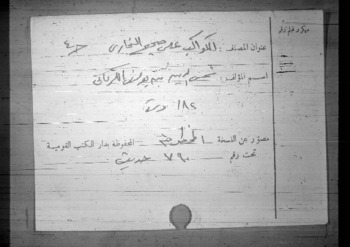 ميكروفيلم رقم
عنوان المصنف : الكواكب على صحيح البخارى ج٤
اسم المؤلف : شمس الدين محمد بن يوسف الكرمانى
١٨٢ ورقة
مصور عن النسخة المخطوطة المحفوظة بدار الكتب القومية
تحت رقم ٧٩٠ حديث